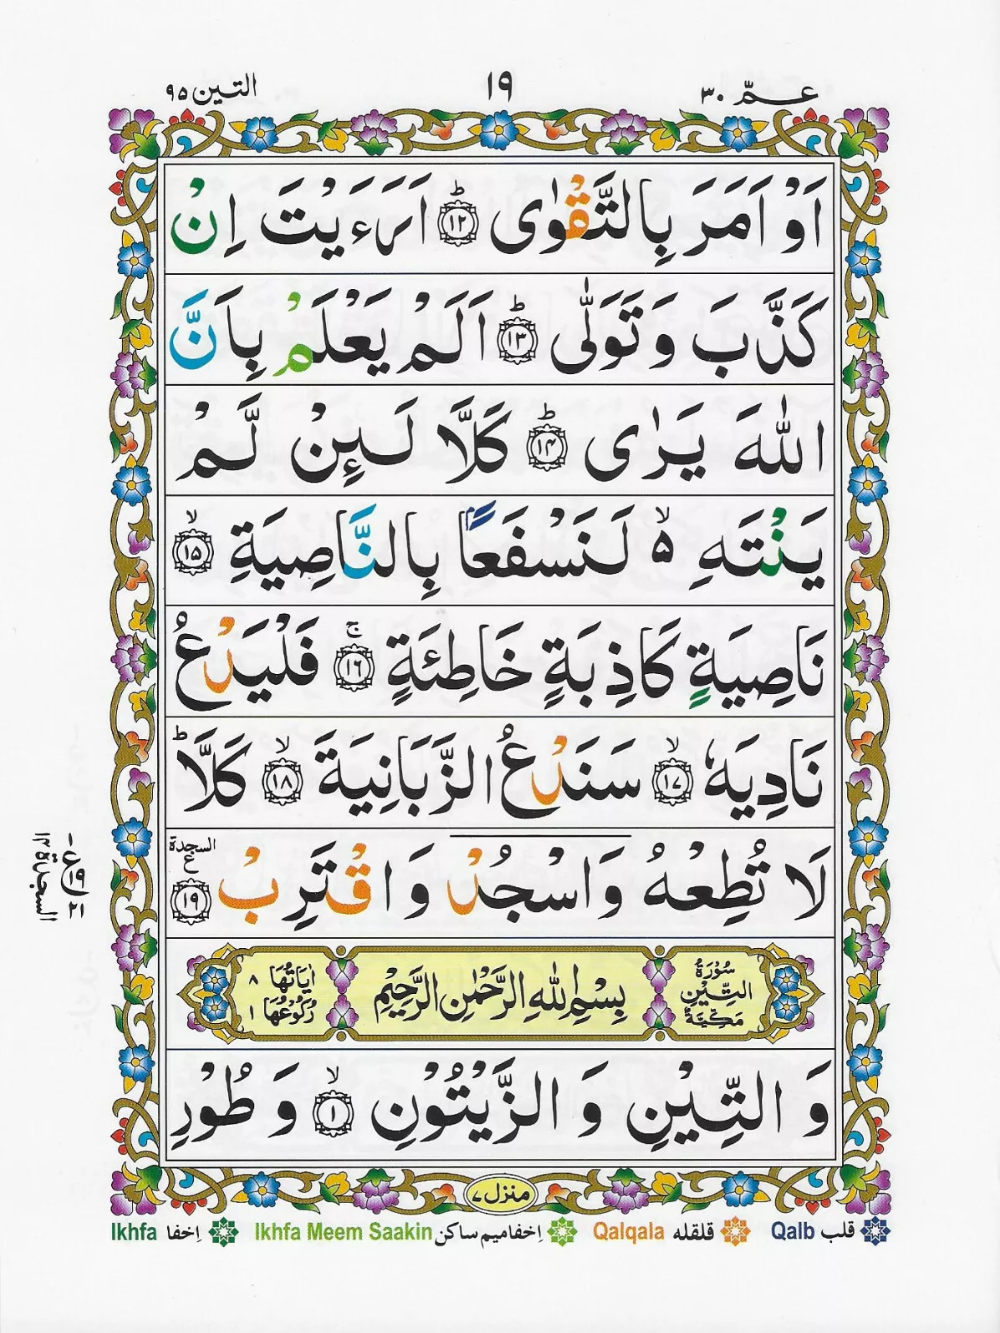 عـمّ ٣٠
١٩
التين ٩٥
اَوْ اَمَرَ بِالتَّقْوٰى ؕ ﴿١٢﴾ اَرَءَيْتَ اِنْ
كَذَّبَ وَ تَوَلّٰى ؕ ﴿١٣﴾ اَلَمْ يَعْلَمْ بِاَنَّ
اللّٰهَ يَرٰى ؕ ﴿١۴﴾ كَلَّا لَـئِنْ لَّمْ
يَنْتَهِ ۙ ۵ لَنَسْفَعًۢا بِالنَّاصِيَةِ ۙ ﴿١۵﴾
نَاصِيَةٍ كَاذِبَةٍ خَاطِئَةٍ ۚ ﴿١٦﴾ فَلْيَدْعُ
نَادِيَهٗ ۙ ﴿١٧﴾ سَنَدْعُ الزَّبَانِيَةَ ۙ ﴿١٨﴾ كَلَّا ؕ
لَا تُطِعْهُ وَ اسْجُدْ وَ اقْتَرِبْ السجدة ع ﴿١٩﴾
ع ١٩ ٢١ السجدة ١٣
سُوْرَةُ التِّيْنِ مَكِّيَّةٌ
بِسْمِ اللّٰهِ الرَّحْمٰنِ الرَّحِيْمِ
اٰيَاتُهَا ٨
رُكُوْعُهَا ١
وَ التِّيْنِ وَ الزَّيْتُوْنِ ۙ ﴿١﴾ وَ طُوْرِ
منزل ٧
قلب Qalb قلقله Qalqala اِخفا میم ساکن Ikhfa Meem Saakin اِخفا Ikhfa